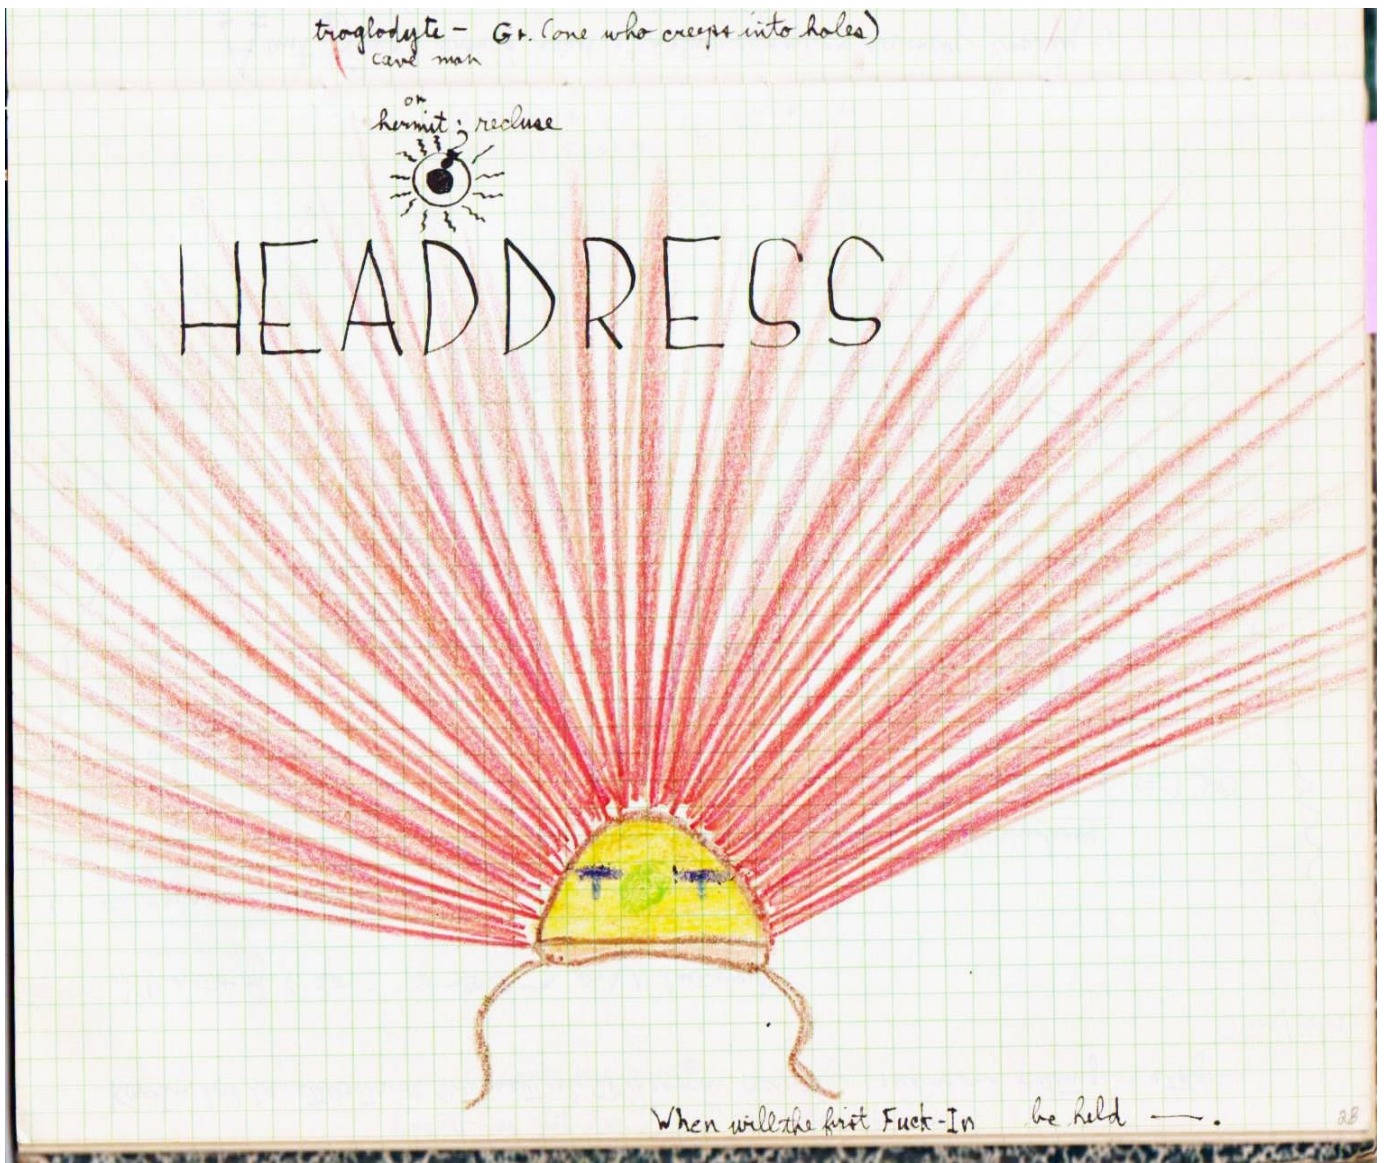 troglodyte – Gr. (one who creeps into holes)
cave man
or
hermit; recluse
HEADDRESS
When will the first Fuck-In be held —.
28